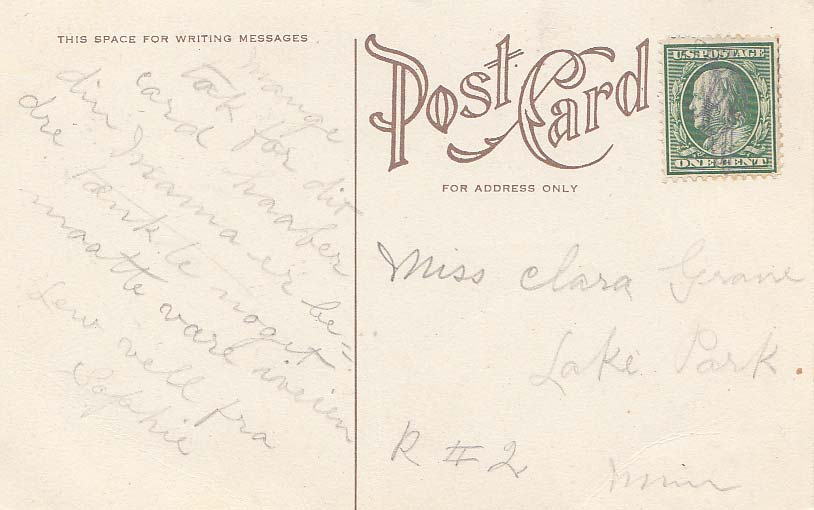 THIS SPACE FOR WRITING MESSAGES
mange
tak for dit
card haaber
din Mama er be-
dre tænkte noget
maatte vare iveien
Lew vell fra
Sophie
Post Card
FOR ADDRESS ONLY
U.S. POSTAGE
ONE CENT
Miss Clara Grave
Lake Park
R #2
Minn